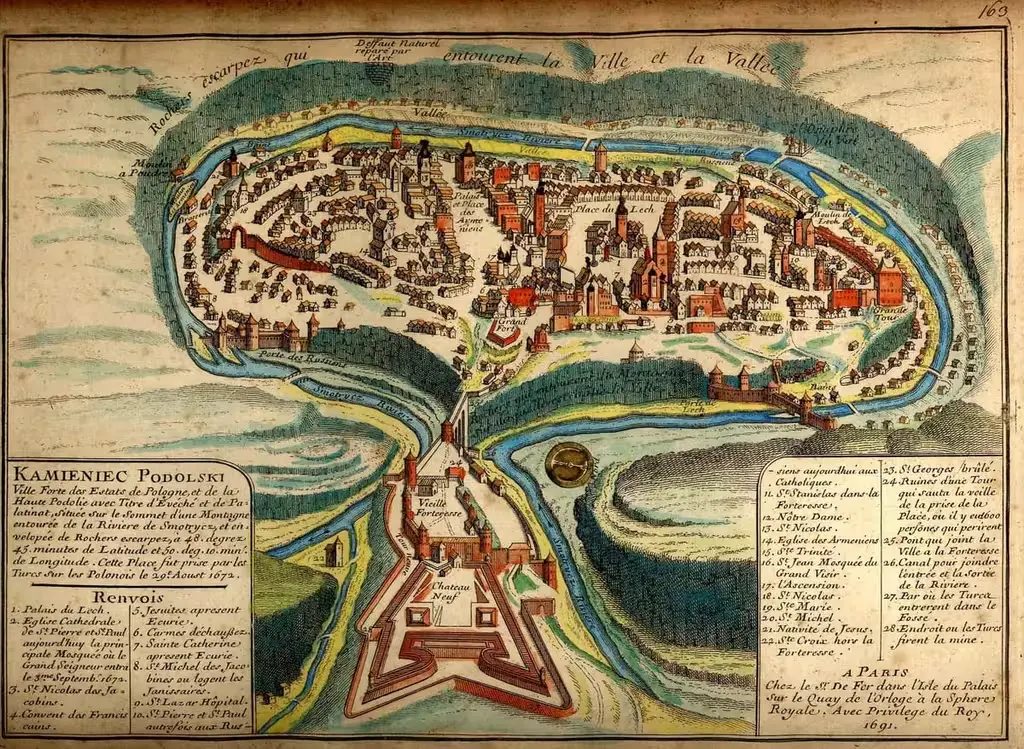 163
Deffaut Naturel
reparé par
l'Art
Rochers escarpez qui entourent la Ville et la Vallée
Vallée
Smotrycz Riviere
Moulin
a Poudre
Palais
et Place
des
Arme
niens
Place du Lech
Moulin de
Lech
Grand
Fort
Grande
Tour
Porte des Russiens
Smotrycz Riviere
Porte
Lech
Bain
24
Vieille
Forteresse
Chateau
Neuf
KAMIENIEC PODOLSKI
Ville Forte des Estats de Pologne, et de la
Haute Podolie avec Titre d'Evêché et de Pa-
latinat, Située sur le Sommet d'une Montagne
entourée de la Riviere de Smotrycz, et en-
velopée de Rochers escarpez, a 48. degrez
45. minutes de Latitude et 50. deg. 10. min.
de Longitude. Cette Place fut prise par les
Turcs sur les Polonois le 29e. Aoust 1672.
Renvois
1. Palais du Lech.
2. Eglise Cathedrale
de St. Pierre et St. Paul
aujourd'huy la prin-
cipale Mosquée où le
Grand Seigneur entra
le 3me Septemb. 1672.
3. St. Nicolas des Ja-
cobins.
4. Convent des Francis
cains.
5. Jesuites apresent
Ecurie.
6. Carmes déchaussez.
7. Sainte Catherine
apresent Ecurie.
8. St. Michel des Jaco-
bins ou logent les
Janissaires.
9. St. Lazar Hôpital.
10. St. Pierre et St. Paul
autrefois aux Rus-
-siens aujourdhui aux
Catholiques.
11. St. Stanislas dans la
Forteresse.
12. Nôtre Dame.
13. St. Nicolas.
14. Eglise des Armeniens
15. Ste. Trinité.
16. St. Jean Mosquée du
Grand Visir.
17. l'Ascension.
18. St. Nicolas.
19. Ste. Marie.
20. St. Michel.
21. Nativité de Jesus.
22. Ste. Croix hors la
Forteresse.
23. St. Georges brûlé.
24. Ruines d'une Tour
qui sauta la veille
de la prise de la
Place, où il y eut 600
persones qui perirent
25. Pont qui joint la
Ville a la Forteresse
26. Canal pour joindre
l'entrée et la Sortie
de la Riviere.
27. Par où les Turcs
entrerent dans le
Fosse.
28. Endroit ou les Turcs
firent la mine.
A PARIS
Chez le Sr. De Fer dans l'Isle du Palais
sur le Quay de l'Orloge à la Sphere
Royale. Avec Privilege du Roy,
1691.